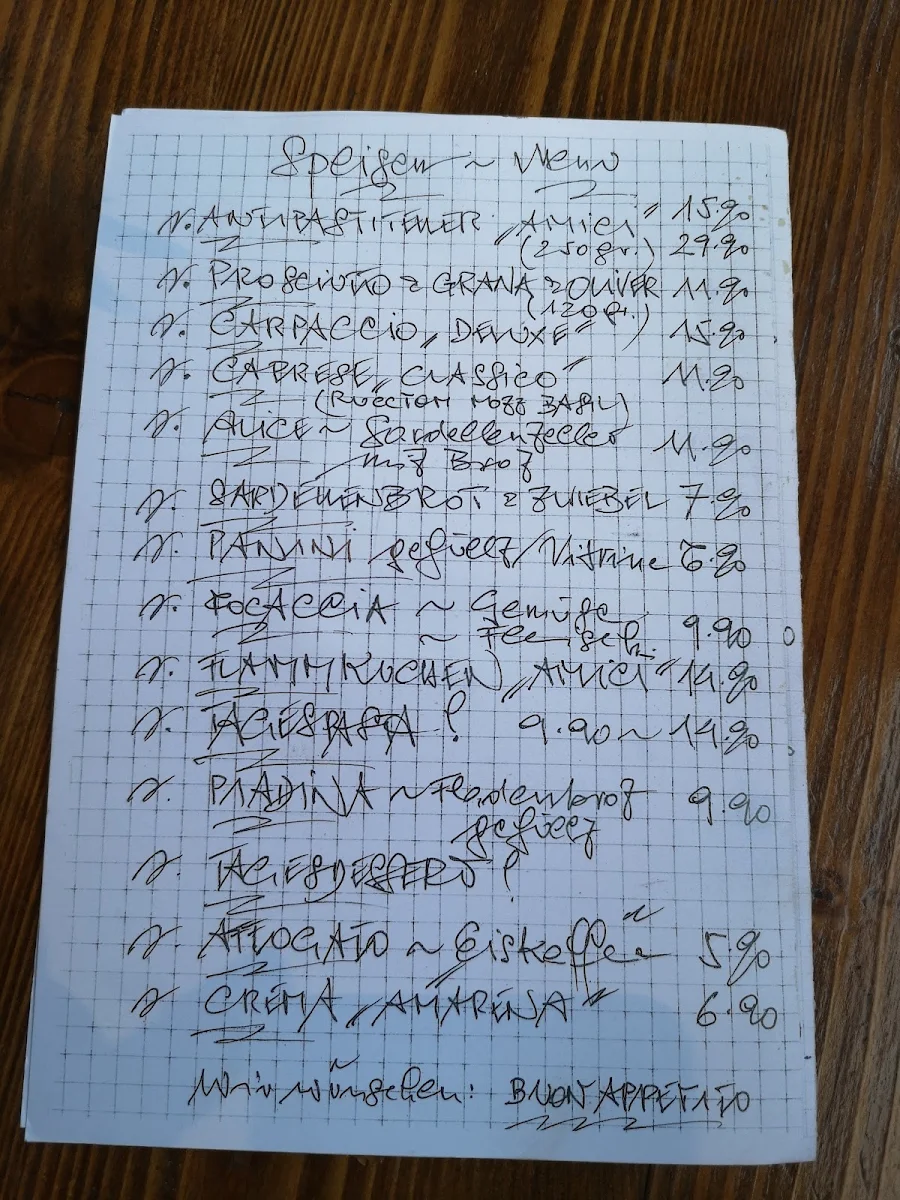 Speisen ~ Menu
ANTIPASTITELLER „AMICI" 15.90
(250gr.) 29.90
PROSCIUTTO GRANA OLIVEN 11.90
(120gr.)
CARPACCIO „DELUXE" 15.90
CAPRESE „CLASSICO" 11.90
(RUCCTOM MOZZ BASIL)
ALICE ~ Sardellenteller 11.90
mit Brot
SARDELLENBROT ZWIEBEL 7.90
PANINI gefüllt/Vitrine 6.90
FOCACCIA ~ Gemüse
~ Fleisch. 9.90
FLAMM(KUCHEN) „AMICI" 14.90
TAGESPASTA! 9.90 ~ 14.90
PIADINA ~ Fladenbrot 9.90
gefüllt
TAGESDESSERT!
AFFOGATO ~ „Eiskaffee" 5.90
CREMA „AMARENA" 6.90
Wir wünschen: BUON APPETITO